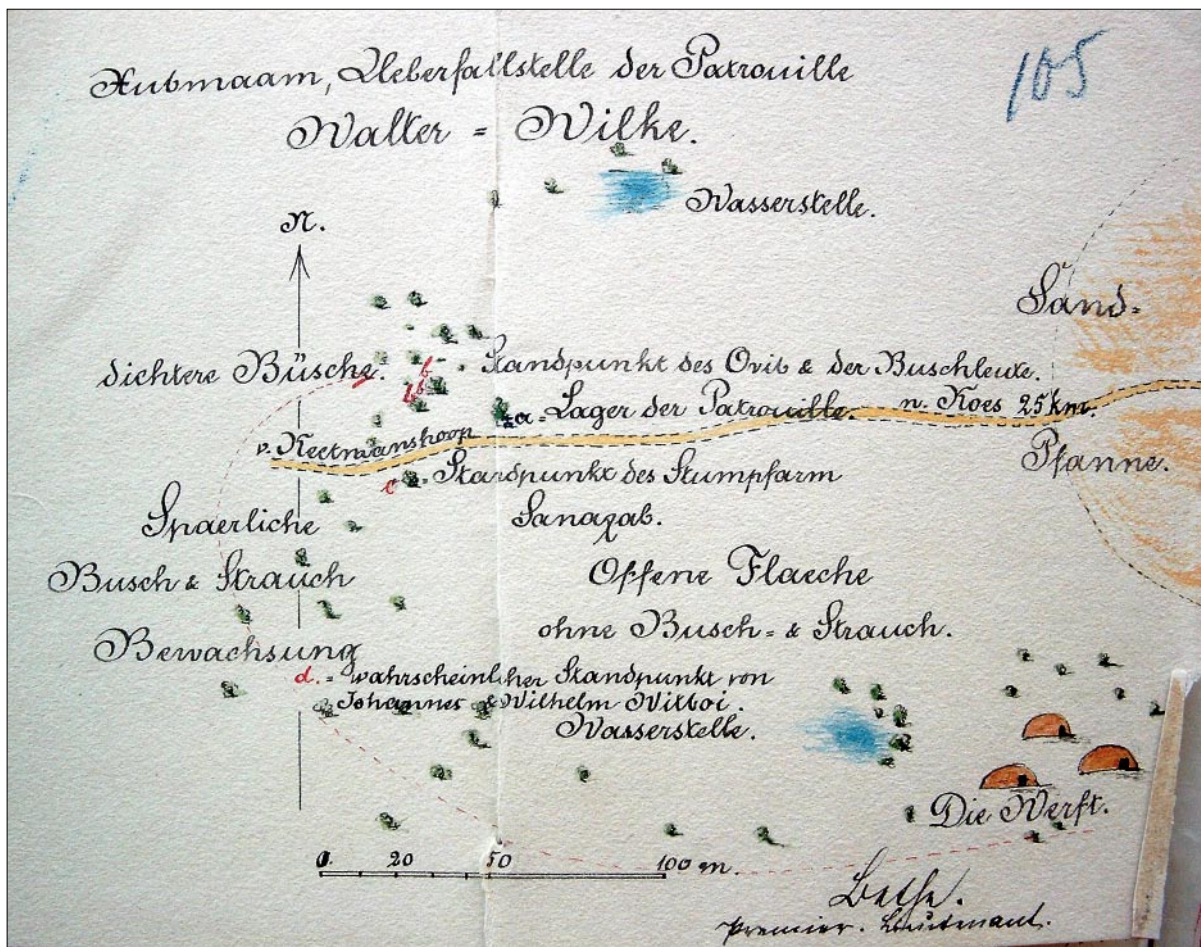 Xubmaam, Ueberfallstelle der Patrouille
Walter = Wilke.
105
Wasserstelle.
N.
Sand=
dichtere Büsche.
b
b b
- Standpunkt des Orib & der Buschleute.
a = Lager der Patrouille.
n. Koes 25 km.
v. Keetmanshoop
Pfanne.
c = Standpunkt des Stumpfarm
Sanaxab.
Spaerliche
Busch & Strauch
Bewachsung
Offene Flaeche
ohne Busch = & Strauch.
d. = wahrscheinlicher Standpunkt von
Johannes & Wilhelm Witboi.
Wasserstelle.
Die Werft.
0. 20 50 100 m.
Bethe.
Premier. Lieutenant.